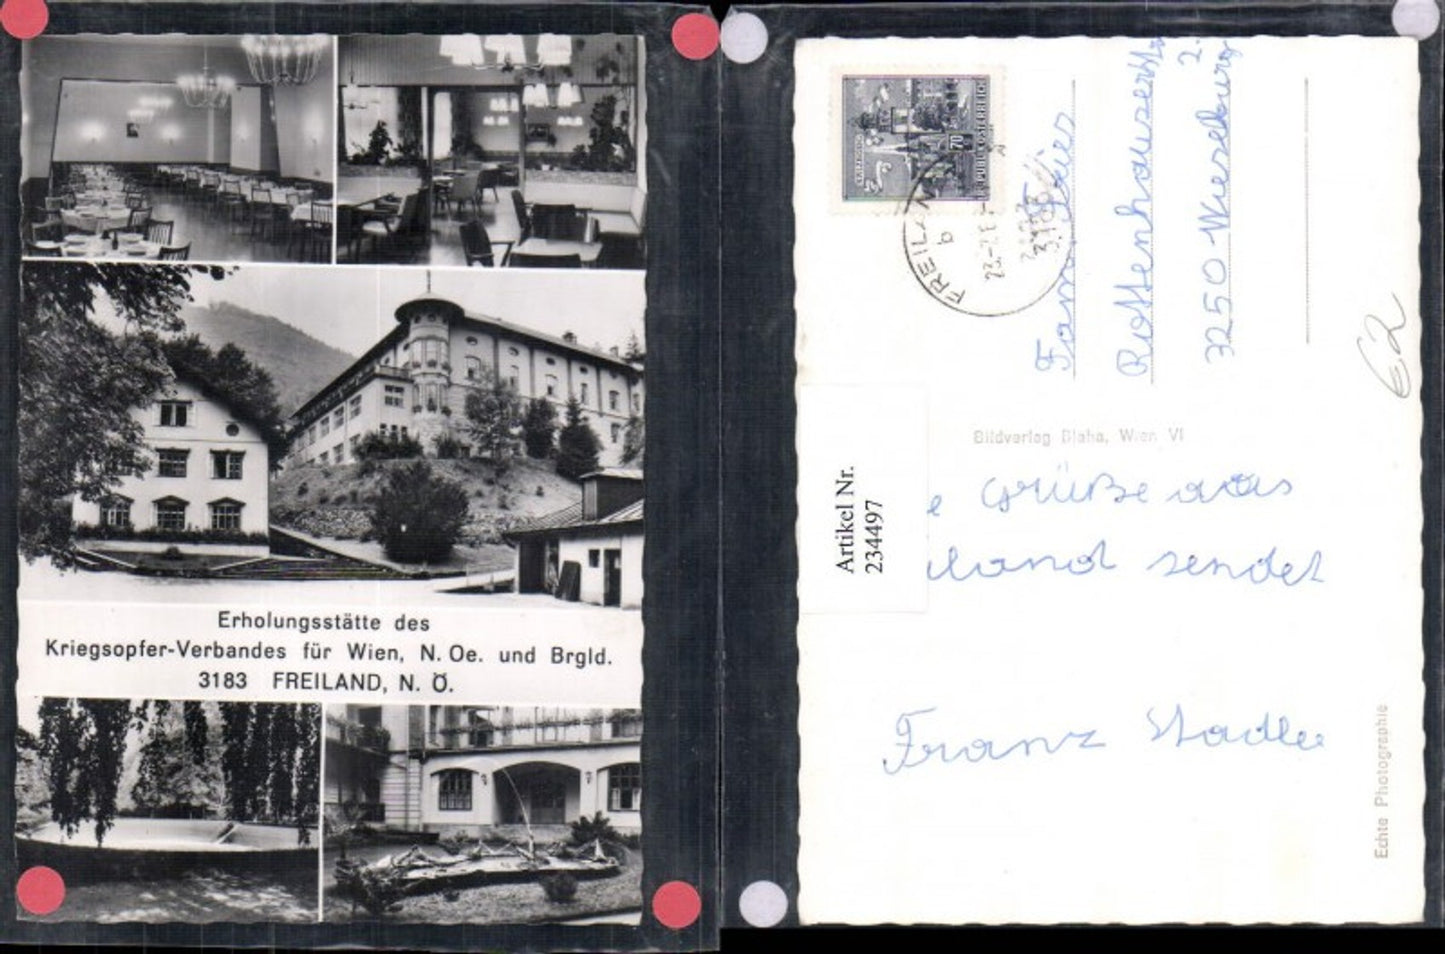 Erholungsstätte des
Kriegsopfer-Verbandes für Wien, N. Oe. und Brgld.
3183 FREILAND, N. Ö.
REPUBLIK ÖSTERREICH
70
FREILAN
b
3183
Rottenhauserstr
2.
3250 Wieselburg
€2
Bildverlag Blaha, Wien VI
Artikel Nr.
234497
e Grüße aus
land sendet
Franz Stadler
Echte Photographie